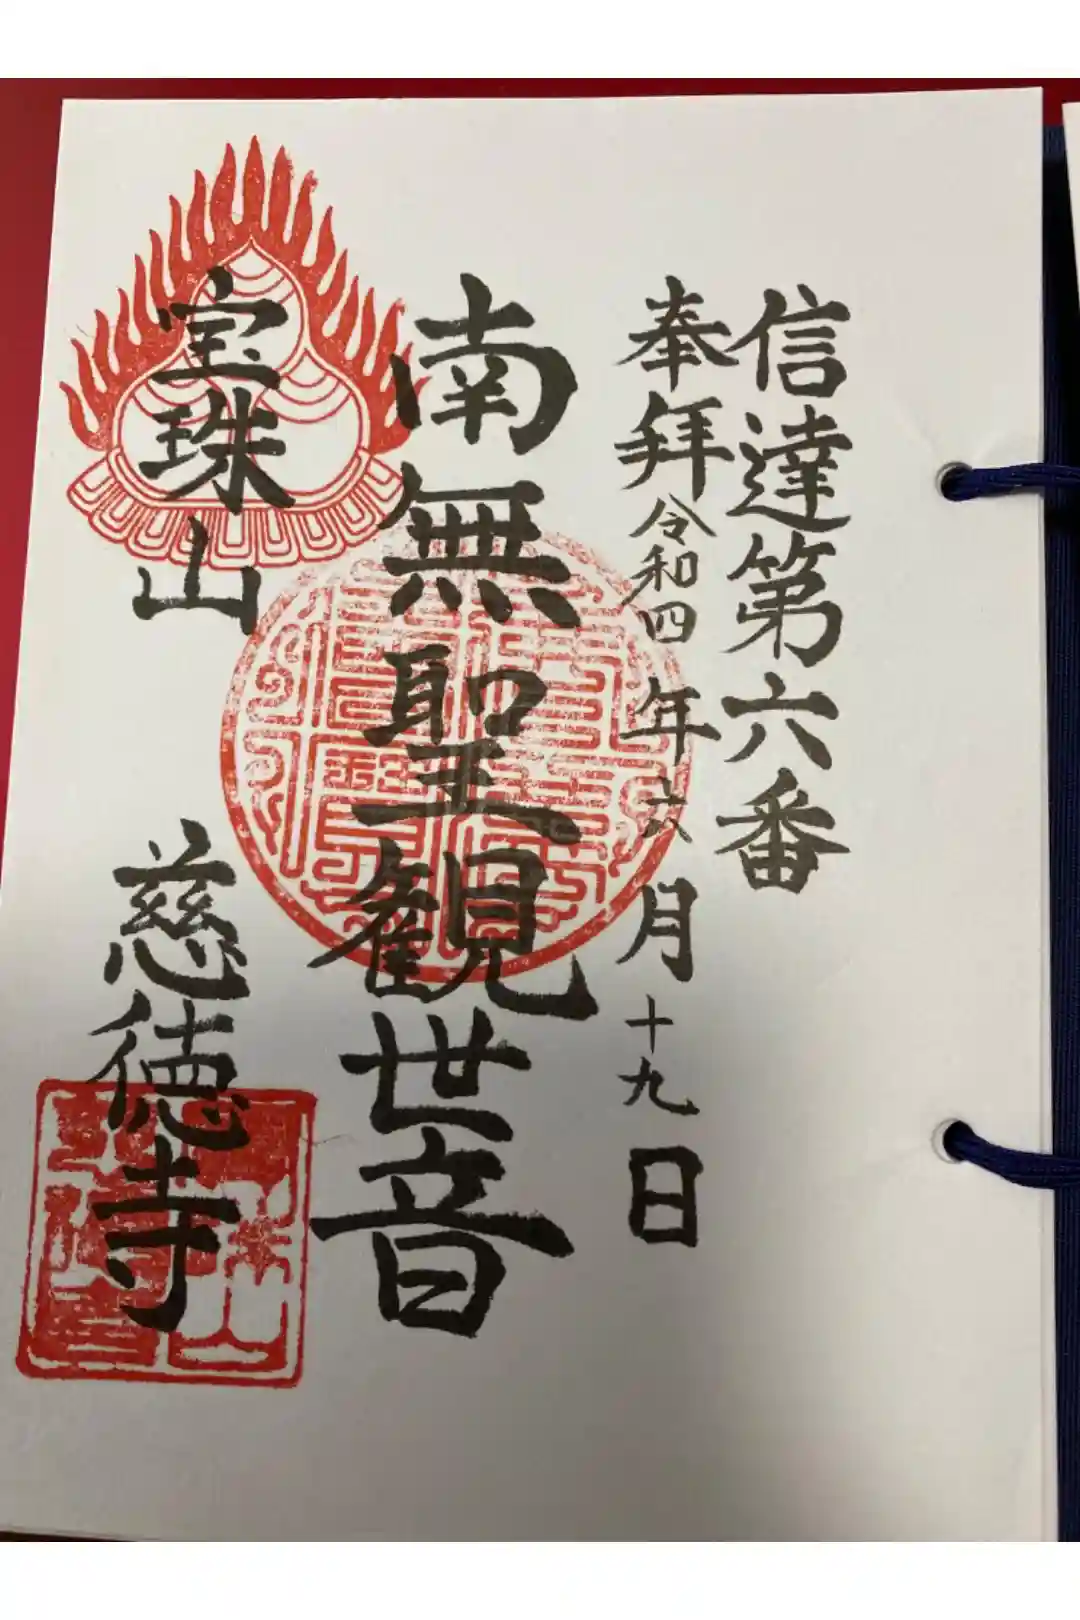 信達第六番
奉拝 令和四年六月十九日
南無聖観世音
宝珠山
慈徳寺